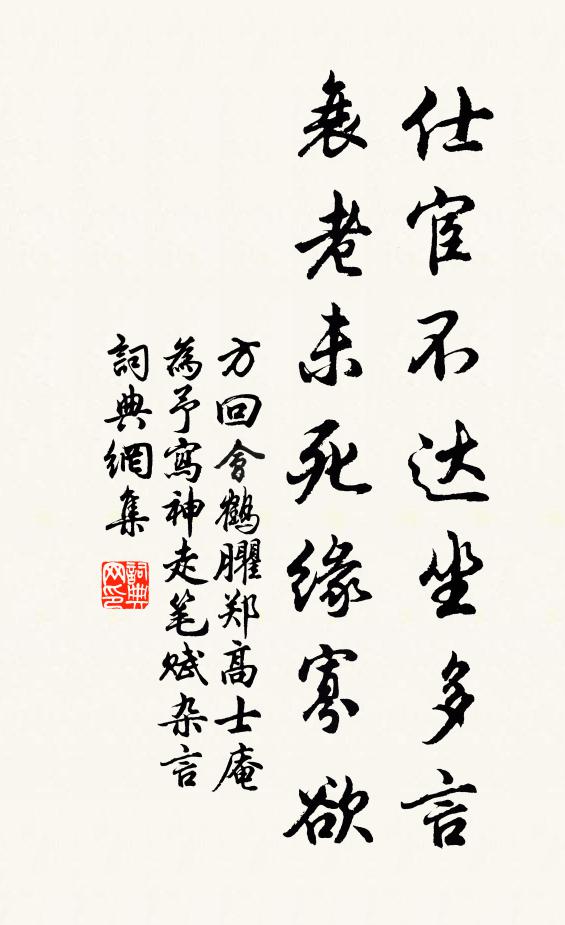 仕宦不达坐多言
衰老未死缘寡欲
方回會鶴臞郑高士庵
為予寫神走笔赋杂言
詞典網集
詞典网印